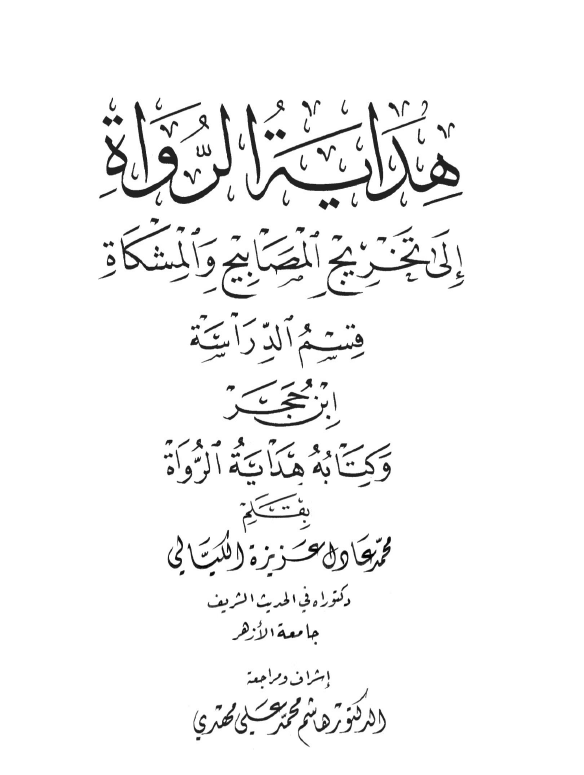 هِدَايَةُ الرُّوَاةِ
إِلَى تَخْرِيجِ ٱلْمَصَابِيحِ وَٱلْمِشْكَاةِ
قِسْمُ ٱلدِّرَاسَةِ
ابْنُ حَجَرٍ
وَكِتَابُهُ هِدَايَةُ ٱلرُّوَاةِ
بِقَلَمِ
محمّد عادل عزيزة الكيّالي
دكتوراه في الحديث الشريف
جامعة الأزهر
إشراف ومراجعة
الدكتور هاشم محمّد علي مهدي